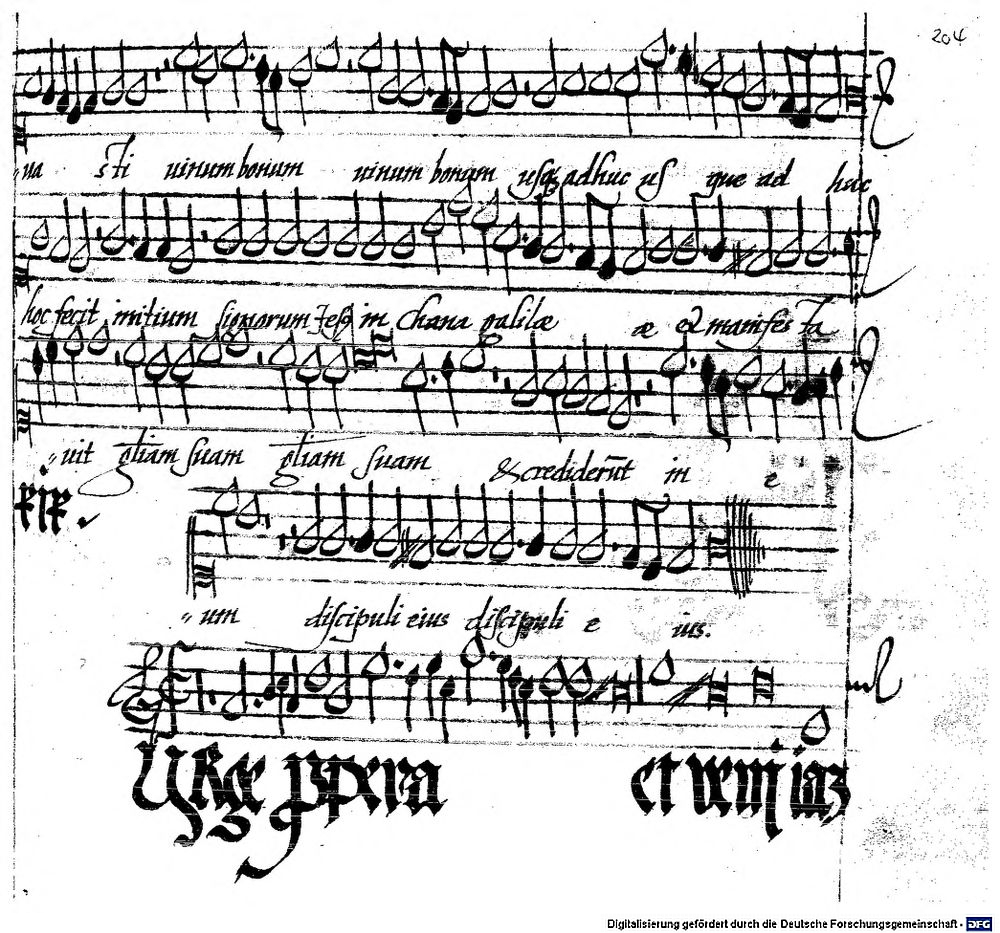 204
ua sti uinum bonum uinum bonum usq adhuc us que ad huc
hoc fecit initium signorum Jesꝰ in Chana galilæ æ et manifes ta
uit gl̃iam suam gl̃iam suam & credider̃ut in e
um discipuli eius discipuli e ius.
et veni iaz
Digitalisierung gefördert durch die Deutsche Forschungsgemeinschaft - DFG